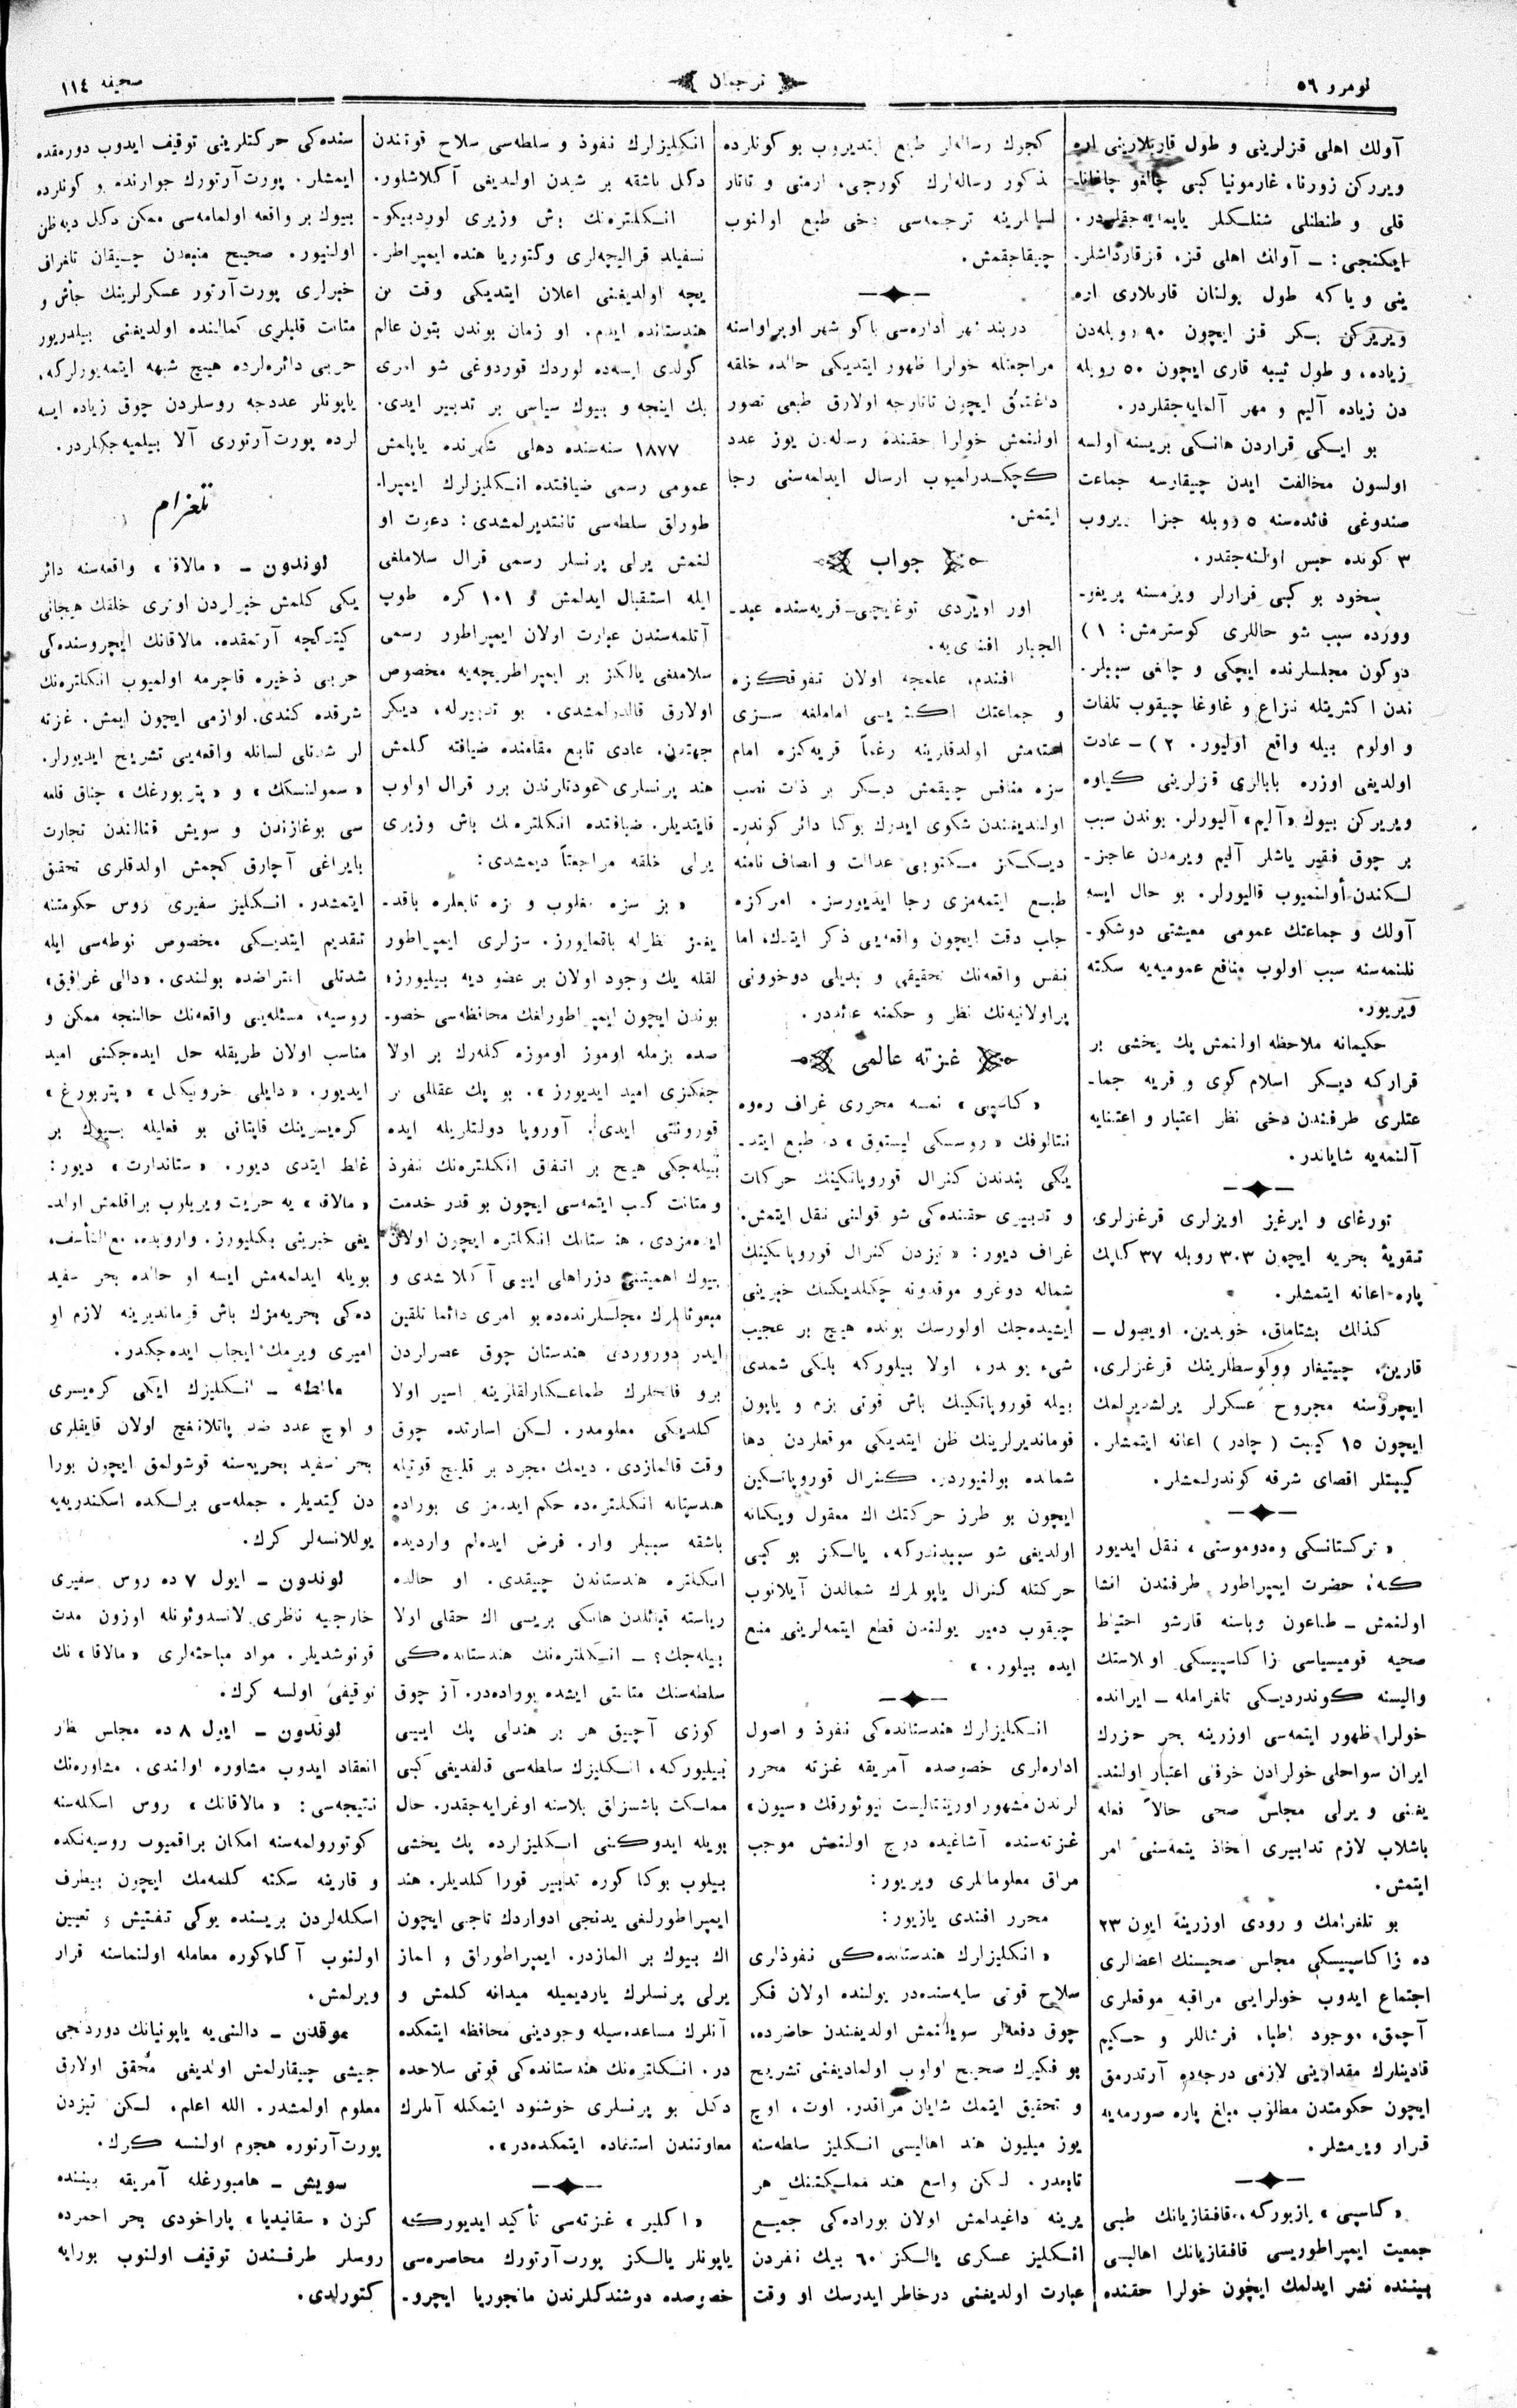 نومرو ٥٦
ترجمان
صحيفه ١١٤
آولك اهلى قزلرينى و طول قاريلارينى اره
ويرركن زورنا، غارمونيا كبى چالغو چاغانا-
قلى و طنطنلى شنلكلر ياپمايه‌جقلردر.
ايكنجى: ــ آولك اهلى قز، قزقارداشلر-
ينى و ياكه طول بولنان قاريلارى اره
ويريركن بكر قز ايچون ٩٠ روبله‌دن
زياده، و طول ثيبه قارى ايچون ٥٠ روبله
دن زياده آليم و مهر آلمايه‌جقلردر.
بو ايكى قراردن هانكى بريسنه اولسه
اولسون مخالفت ايدن چيقارسه جماعت
صندوغى فائده‌سنه ٥ روبله جزا ويروب
٣ كونده حبس اولنه‌جقدر.
سخود بو كبى قرارلر ويرمسنه پريغو-
وورده سبب شو حاللرى كوسترمش: ١)
دوكون مجلسلرنده ايچكى و چالغى سببلر-
ندن اكثريتله نزاع و غاوغا چيقوب تلفات
و اولوم بيله واقع اوليور. ٢) ــ عادت
اولديغى اوزره بابالرى قزلرينى كياوه
ويريركن بيوك «آليم» آليورلر. بوندن سبب
بر چوق فقير ياشلر آليم ويرمدن عاجز-
لكندن أولنميوب قاليورلر. بو حال ايسه
آولك و جماعتك عمومى معيشتى دوشكو-
نلنمه‌سنه سبب اولوب منافع عموميه‌يه سكته
ويريور.
حكيمانه ملاحظه اولنمش پك يخشى بر
قراركه ديكر اسلام كوى و قريه جما-
عتلرى طرفندن دخى نظر اعتبار و اعتنايه
آلنمه‌يه شاياندر.
تورغاى و ايرغيز اويزلرى قرغزلرى
تقويهٔ بحريه ايچون ٣٠٣ روبله ٣٧ كاپك
پاره اعانه ايتمشلر.
كذالك بشتاماق، خوبدين، اويصول ــ
قارين، چيتيغار وولوسطلرينك قرغزلرى،
ايچروسنه مجروح عسكرلر يرلشديرلمك
ايچون ١٥ كيبت (چادر) اعانه ايتمشلر.
كيبتلر اقصاى شرقه كوندرلمشلر.
«تركستانسكى وه‌دوموستى» نقل ايديور
كه، حضرت ايمپراطور طرفندن انشا
اولنمش ــ طاعون وباسنه قارشو احتياط
صحيه قوميسياسى زاكاسپيسكى اوبلاستك
واليسنه كوندرديكى تلغرامله ــ ايرانده
خولرا ظهور ايتمه‌سى اوزرينه بحر حزرك
ايران سواحلى خولرادن خرقلى اعتبار اولند-
يغنى و يرلى مجلس صحى حالاً فعله
باشلاب لازم تدابيرى اتخاذ يتمه‌سنى امر
ايتمش.
بو تلغرامك ورودى اوزرينه ايون ٢٣
ده زاكاسپيسكى مجلس صحيسنك اعضالرى
اجتماع ايدوب خولرايى مراقبه موقعلرى
آچمق، موجود اطبا، فرشاللر و حكيم
قادينلرك مقدارينى لازمى درجه‌ده آرتدرمق
ايچون حكومتدن مطلوب مبلغ پاره صورمه‌يه
قرار ويرمشلر.
«كاسپى» يازيوركه، قافقازيانك طبى
جمعيت ايمپراطوريسى قافقازيانك اهاليسى
بيننده نشر ايدلمك ايچون خولرا حقنده
كچرك رساله‌لر طبع ايتديروب بو كونلرده
مذكور رساله‌لرك كورجى، ارمنى و تاتار
لسانلرينه ترجمه‌سى دخى طبع اولنوب
چيقاجقمش.
دربند شهر اداره‌سى باكو شهر اوپراواسنه
مراجعتله خولرا ظهور ايتديكى حالده خلقه
داغتمق ايچون تاتارجه اولارق طبعى تصور
اولنمش خولرا حقنده رساله‌دن يوز عدد
كچكدرلميوب ارسال ايدلمه‌سنى رجا
ايتمش.
جواب
اور اويزدى توغايچى قريه‌سنده عبد-
الجبار افندى‌يه.
افندم، علمجه اولان تفوقكزه
و جماعتك اكثريسى اماملغه سزى
استه‌مش اولدقلرينه رغماً قريه‌كزه امام
سزه منافس چيقمش ديكر بر ذات نصب
اولنديغندن شكوى ايدرك بوكا دائر كوندر-
ديككز مكتوبى عدالت و انصاف نامنه
طبع ايتمه‌مزى رجا ايديورسز. امركزه
جلب دقت ايچون واقعه‌يى ذكر ايتدك، اما
نفس واقعه‌نك تحقيقى و تبديلى دوخوونى
پراولانيه‌نك نظر و حكمنه عائددر.
غزته عالمى
«كاسپى» نمسه محررى غراف ره‌وه
نتالوفك «روسكى ليستوق» ده طبع ايتد-
يكى بندندن كنرال قوروپاتكينك حركات
و تدبيرى حقنده‌كى شو قولنى نقل ايتمش.
غراف ديور: «تيزدن كنرال قوروپاتكينك
شماله دوغرو موقدونه چكلديكنك خبرينى
ايشيده‌جك اولورسك بونده هيچ بر عجيب
شىء يوقدر، اولا بيلوركه بلكى شمدى
بيله قوروپاتكينك باش قوتى بزم و ياپون
قوماندير‌لرينك ظن ايتديكى موقعلردن دها
شمالده بولنيوردر. كنرال قوروپاتكين
ايچون بو طرز حركتك اك معقول ويكانه
اولديغى شو سببدندركه، يالكز بو كبى
حركتله كنرال ياپونلرك شمالدن آيلانوب
چيقوب دمير يولندن قطع ايتمه‌لرينى منع
ايده بيلور.»
انكليزلرك هندستانده‌كى نفوذ و اصول
اداره‌لرى خصوصده آمريقه غزته محرر
لرندن مشهور اوريئنتاليست نيوئورقك «سيون»
غزته‌سنده آشاغيده درج اولنمش موجب
مراق معلوماتلرى ويريور:
محرر افندى يازيور:
«انكليزلرك هندستانده‌كى نفوذلرى
سلاح قوتى سايه‌سنده‌در يولنده اولان فكر
چوق دفعه‌لر سويلنمش اولديغندن حاضرده،
بو فكيرك صحيح اولوب اولماديغنى تشريح
و تحقيق ايتمك شايان مراقدر. اوت، اوچ
يوز ميليون هند اهاليسى انكليز سلطه‌سنه
تابعدر. لكن واسع هند مملكتينك هر
يرينه داغيدلمش اولان بوراده‌كى جميع
انكليز عسكرى يالكز ٦٠ بيك نفردن
عبارت اولديغنى درخاطر ايدرسك او وقت
انكليزلرك نفوذ و سلطه‌سى سلاح قوتندن
دكل باشقه بر شيدن اولديغى آكلاشلور.
انكلتره‌نك باش وزيرى لوردبيكو-
نسفيلد قراليچه‌لرى وكتوريا هنده ايمپراطر-
يچه اولديغنى اعلان ايتديكى وقت بن
هندستانده ايدم. او زمان بوندن بتون عالم
كولدى ايسه‌ده لوردك قوردوغى شو امرى
بك اينجه و بيوك سياسى بر تدبير ايدى.
١٨٧٧ سنه‌سنده دهلى شهرنده ياپلمش
عمومى رسمى ضيافتده انكليزلرك ايمپرا-
طورلق سلطه‌سى تانتديرلمشدى: دعوت او
لنمش يرلى پرنسلر رسمى قرال سلاملغى
ايله استقبال ايدلمش و ١٠١ كره طوپ
آتلمه‌سندن عبارت اولان ايمپراطور رسمى
سلاملغى يالكز بر ايمپراطريچه‌يه مخصوص
اولارق قالدرلمشدى. بو تدبيرله، ديكر
جهتدن، عادى تابع مقامنده ضيافته كلمش
هند پرنسلرى عودتلرندن برر قرال اولوب
قايتديلر. ضيافتده انكلتره‌نك باش وزيرى
يرلى خلقه مراجعتاً ديمشدى:
«بز سزه مغلوب و بزه تابعلره باقد-
يغمز نظرله باقمايورز. سزلرى ايمپراطور
لقله يك وجود اولان بر عضو ديه بيليورز،
بوندن ايچون ايمپراطورلغك محافظه‌سى خصو-
صده بزمله اوموز اوموزه كله‌رك بر اولا
جغكزى اميد ايديورز». بو پك عقللى بر
قورونتى ايدى. آوروپا دولتلريله ايده
بيله‌جكى هيچ بر اتفاق انكلتره‌نك نفوذ
و متانت كسب ايتمه‌سى ايچون بو قدر خدمت
ايده‌مزدى. هندستانك انكلتره ايچون اولان
بيوك اهميتنى دزراهلى ايييى آكلامشدى و
مبعوثانلرك مجلسلرنده‌ده بو امرى دائما تلقين
ايدر دوروردى هندستان چوق عصرلردن
برو فاتحلرك طماعكارلقلرينه اسير اولا
كلديكى معلومدر. لكن اسارتده چوق
وقت قالمازدى. ديمك مجرد بر قليچ قوتيله
هندستانه انكلتره‌ده حكم ايده‌مزدى بوراده
باشقه سببلر وار. فرض ايده‌لم وارديده
انكلتره هندستاندن چيقدى. او حالده
رياسته قبائلدن هانكى بريسى اك حقلى اولا
بيله‌جك؟ ــ انكلتره‌نك هندستانده‌كى
سلطه‌سنك متانتى ايشده بوراده‌در. آز چوق
كوزى آچيق هر بر هندلى پك ايييى
بيليوركه، انكليزك سلطه‌سى قالقديغى كبى
مملكت باشسزلق بلاسنه اوغرايه‌جقدر. حال
بويله ايدوكنى انكليزلرده پك يخشى
بيلوب بوكا كوره تدابير قورا كلديلر. هند
ايمپراطورلغى يدنجى ادواردك تاجى ايچون
اك بيوك بر المازدر. ايمپراطورلق و الماز
يرلى پرنسلرك يارديميله ميدانه كلمش و
آنلرك مساعده‌سيله وجودينى محافظه ايتمكده
در. انكلتره‌نك هندستانده‌كى قوتى سلاحده
دكل بو پرنسلرى خوشنود ايتمكله آنلرك
معاونتندن استفاده ايتمكده‌در».
«اكلير» غزته‌سى تأكيد ايديوركه
ياپونلر يالكز پورت‌آرتورك محاصره‌سى
خصوصده دوشندكلرندن مانجوريا ايچرو-
سنده‌كى حركتلرينى توقيف ايدوب دورمقده
ايمشلر. پورت‌آرتورك جوارنده بو كونلرده
بيوك بر واقعه اولمامه‌سى ممكن دكل ديه ظن
اولنيور. صحيح منبعدن چيقان تلغراف
خبرلرى پورت‌آرتور عسكرلرينك جأش و
متانت قلبلرى كمالنده اولديغنى بيلدريور
حربى دائره‌لرده هيچ شبهه ايتمه‌يورلركه،
ياپونلر عددجه روسلردن چوق زياده ايسه
لرده پورت‌آرتورى آلا بيلميه‌جكلردر.
تلغرام
لوندون ــ «مالاقا» واقعه‌سنه دائر
يكى كلمش خبرلردن اوترى خلقك هيجانى
كيتدكجه آرتمقده. مالاقانك ايچروسنده‌كى
حربى ذخيره قاچرمه اولميوب انكلتره‌نك
شرقده كندى لوازمى ايچون ايمش. غزته
لر شدتلى لسانله واقعه‌يى تشريح ايديورلر.
«سمولنسك» و «پتربورغك» چناق قلعه
سى بوغازندن و سويش قنالندن تجارت
بايراغى آچارق كچمش اولدقلرى تحقق
ايتمشدر. انكليز سفيرى روس حكومتنه
تقديم ايتديكى مخصوص نوطه‌سى ايله
شدتلى اعتراضده بولندى. «دالى غرافيق»
روسيه، مسئله‌يى واقعه‌نك حالنجه ممكن و
مناسب اولان طريقله حل ايده‌جكنى اميد
ايديور. «دايلى خرونيكل» «پتربورغ»
كره‌يسرينك قاپتانى بو فعليله بيوك بر
غلط ايتدى ديور. «ستاندارت» ديور:
«مالاقا» يه حريت ويريلوب براقلمش اولد-
يغى خبرينى بكليورز. واروبده، مع‌التأسف،
بويله ايدلمه‌مش ايسه او حالده بحر سفيد
ده‌كى بحريه‌مزك باش قومانديرينه لازم او
امرى ويرمك ايجاب ايده‌جكدر.
مالطه ــ انكليزك ايكى كره‌يسرى
و اوچ عدد ضد پاتلانغچ اولان قايقلرى
بحر سفيد بحريه‌سنه قوشولمق ايچون بورا
دن كيتديلر. جمله‌سى برلكده اسكندريه‌يه
يوللانسه‌لر كرك.
لوندون ــ ايول ٧ ده روس سفيرى
خارجيه ناظرى لانسدوئونله اوزون مدت
قونوشديلر. مواد مباحثه‌لرى «مالاقا» نك
توقيفى اولسه كرك.
لوندون ــ ايول ٨ ده مجلس نظار
انعقاد ايدوب مشاوره اولندى. مشاوره‌نك
نتيجه‌سى: «مالاقانك» روس اسكله‌سنه
كوتورولمه‌سنه امكان براقميوب روسيه‌نكده
و قارينه سكته كلمه‌مك ايچون بيطرف
اسكله‌لردن بريسنده يوكى تفتيش و تعيين
اولنوب آكا كوره معامله اولنماسنه قرار
ويرلمش.
موقدن ــ دالنى‌يه ياپونيانك دوردنجى
جيشى چيقارلمش اولديغى محقق اولارق
معلوم اولمشدر. الله اعلم، لكن تيزدن
پورت‌آرتوره هجوم اولنسه كرك.
سويش ــ هامبورغله آمريقه بيننده
كزن «سقانيديا» پاراخودى بحر احمرده
روسلر طرفندن توقيف اولنوب بورايه
كتورلدى.